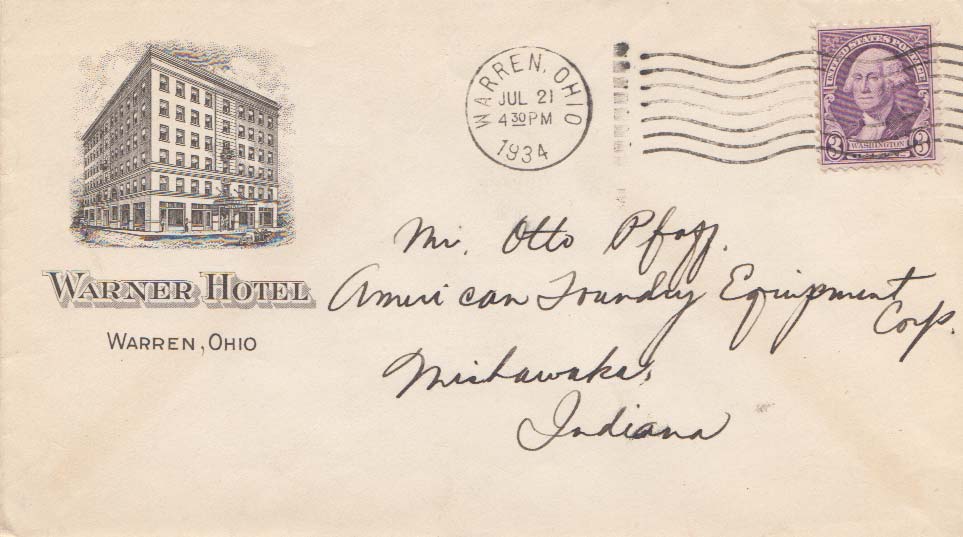 WARREN, OHIO
JUL 21
4 30 PM
1934
UNITED STATES POSTAGE
3 WASHINGTON 3
WARNER HOTEL
WARREN, OHIO
Mr. Otto Pfaff.
American Foundry Equipment
Corp.
Mishawaka,
Indiana